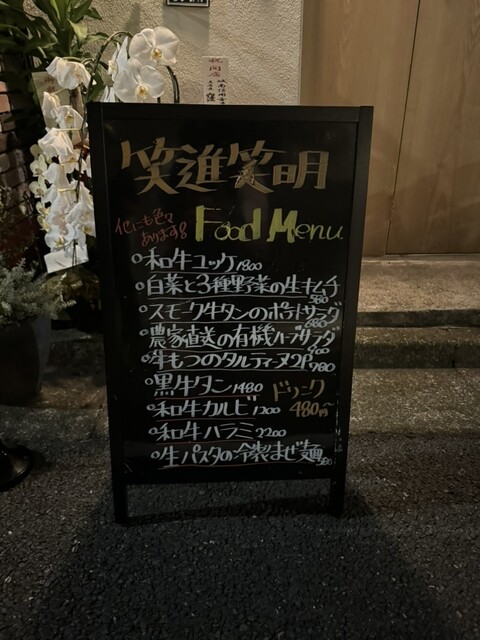 祝開店
笑進笑明
他にも色々
あります!
Food Menu
和牛ユッケ 1800
白菜と3種野菜の生キムチ
580
スモーク牛タンのポテトサラダ
680
農家直送の有機ハーブサラダ
牛もつのタルティーヌ2P 780
黒牛タン 1480
ドリンク
480円~
和牛カルビ 1200
和牛ハラミ 2200
生パスタの冷製まぜ麺